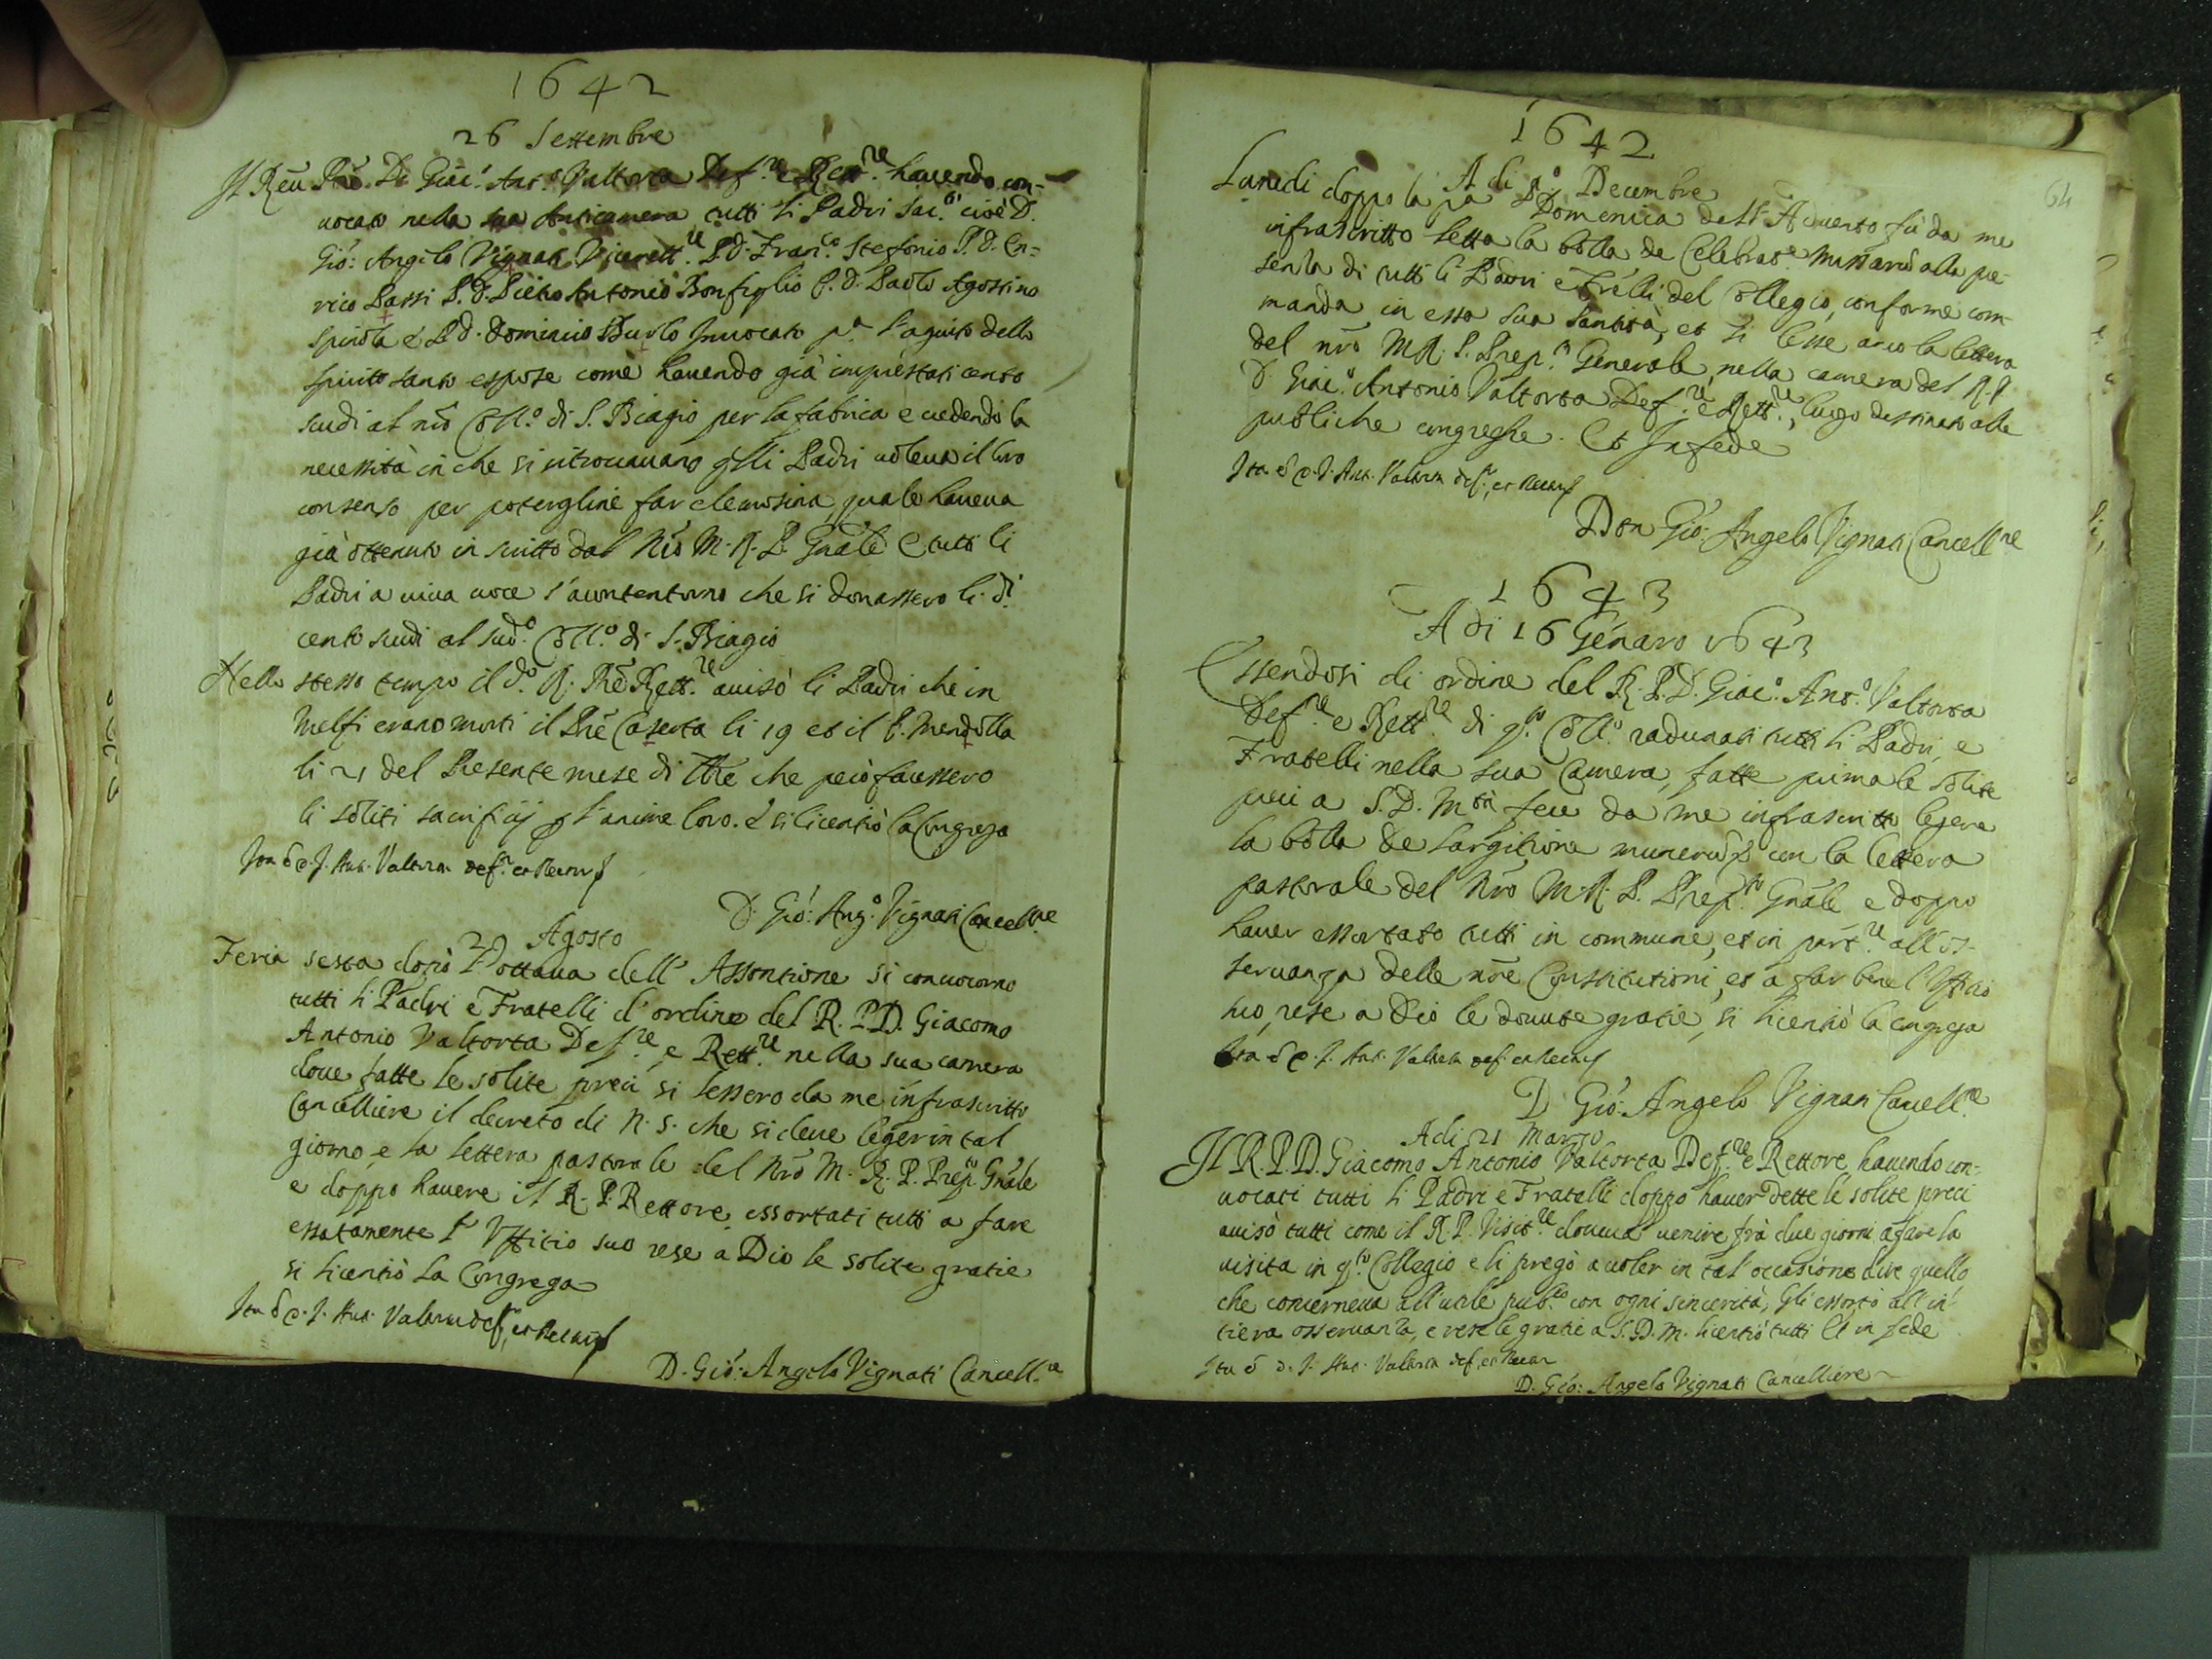 1642
26 Settembre
Il Reu. Pre. D. Giac. Ant.o Valtorta Def.re e Rett.re hauendo con-
uocato nella sua Anticamera tutti li Padri Sac.ti cioè D.
Gio: Angelo Vignati Vicerett.re P. D. Fran.co Stefonio P. D. En=
rico Bassi P. D. Pietro Antonio Bonfiglio P. D. Paolo Agostino
Spinola e P. D. Dominico Burlo Inuocato p.a l'aguito dello
spirito santo espose come hauendo già imprestati cento
scudi al nrō Coll.o di S. Biagio per la fabrica e uedendo la
necessità in che si ritrouauano q̄lli Padri uoleua il loro
consenso per potergline far elemosina, quale haueua
già ottenuto in scritto dal Nrō M. R. P. Gnāle E tutti li
Padri a uiua uoce s'acontentorno che si donassero li d.i
cento scudi al sud.o Coll.o di S. Biagio
Nello stesso tempo il d.o R. Prē Rett.re auisò li Padri che in
Melfi erano morti il Prē Caserta li 19 et il P. Mendolla
li 21 del Presente mese di 7bre che perciò facessero
li soliti sacrificij p l'anime loro. e si licentiò la Congrega
Ita è D. J. Ant. Valtorta def.r et Rector
D. Gio: Ang.o Vignati Cancell.re
22 Agosto
Feria sesta dopò l'ottaua dell' Assontione si conuocorno
tutti li Padri e Fratelli d'ordine del R. P. D. Giacomo
Antonio Valtorta Def.re e Rett.re nella sua camera
doue fatte le solite preci si lessero da me infrascritto
Cancelliere il decreto di N. S. che si deue leger in tal
giorno, e la lettera pastorale del Nrō M. R. P. Prep.to Gnāle
e doppo hauere il R. P. Rettore essortati tutti a fare
essatamente l' Vffitio suo rese a Dio le solite gratie
si licentiò la Congrega
Ita è D. J. Ant. Valtorta def.r et Rector
D. Gio: Angelo Vignati Cancell.re
64
1642
A di p.o Decembre
Lunedi doppo la p.a Domenica dell' Aduento fù da me
infrascritto letta la bolla de Celebrat.e Missarū alla pre-
senza di tutti li Padri e Frēlli del Collegio, conforme com-
manda in essa sua Santità, et si lesse anco la lettera
del nrō M. R. P. Prep.to Generale nella camera del R. P.
D. Giac.o Antonio Valtorta Def.re e Rett.re, luogo destinato alle
publiche congreghe. Et In fede
Ita è D. J. Ant. Valtorta def.r et Rector
Don Gio: Angelo Vignati Cancell.re
1643
A di 16 Genaro 1643
Essendosi di ordine del R. P. D. Giac.o Ant.o Valtorta
Def.re e Rett.re di q.to Coll.o radunati tutti li Padri, e
Fratelli nella sua Camera, fatte prima le solite
preci a S. D. M.tà fece da me infrascritto legere
la bolla De Largitione munerū con la lettera
pastorale del Nrō M. R. P. Prep.to Gnāle e doppo
hauer essortato tutti in commune, et in part.re all'os-
seruanza delle nrē Constitutioni, et a far bene l'Vffitio
suo, rese a Dio le douute gratie, si licentiò la congrega
Ita è D. J. Ant. Valtorta def. et Rector
D. Gio: Angelo Vignati Cancell.re
Adi 21 Marzo
Il R. P. D. Giacomo Antonio Valtorta Def.re e Rettore hauendo con-
uocati tutti li Padri e Fratelli doppo hauer dette le solite preci
auisò tutti come il R. P. Visit.re doueua uenire frà due giorni a fare la
uisita in q.to Collegio e li pregò a uoler in tal occasione dire quello
che concerneua all'utile pub.co con ogni sincerità, gli essortò all'in-
tiera osseruanza, e rese le gratie a S. D. M. licentiò tutti Et in fede
Ita è D. J. Ant. Valtorta def. et Rector
D. Gio: Angelo Vignati Cancelliere